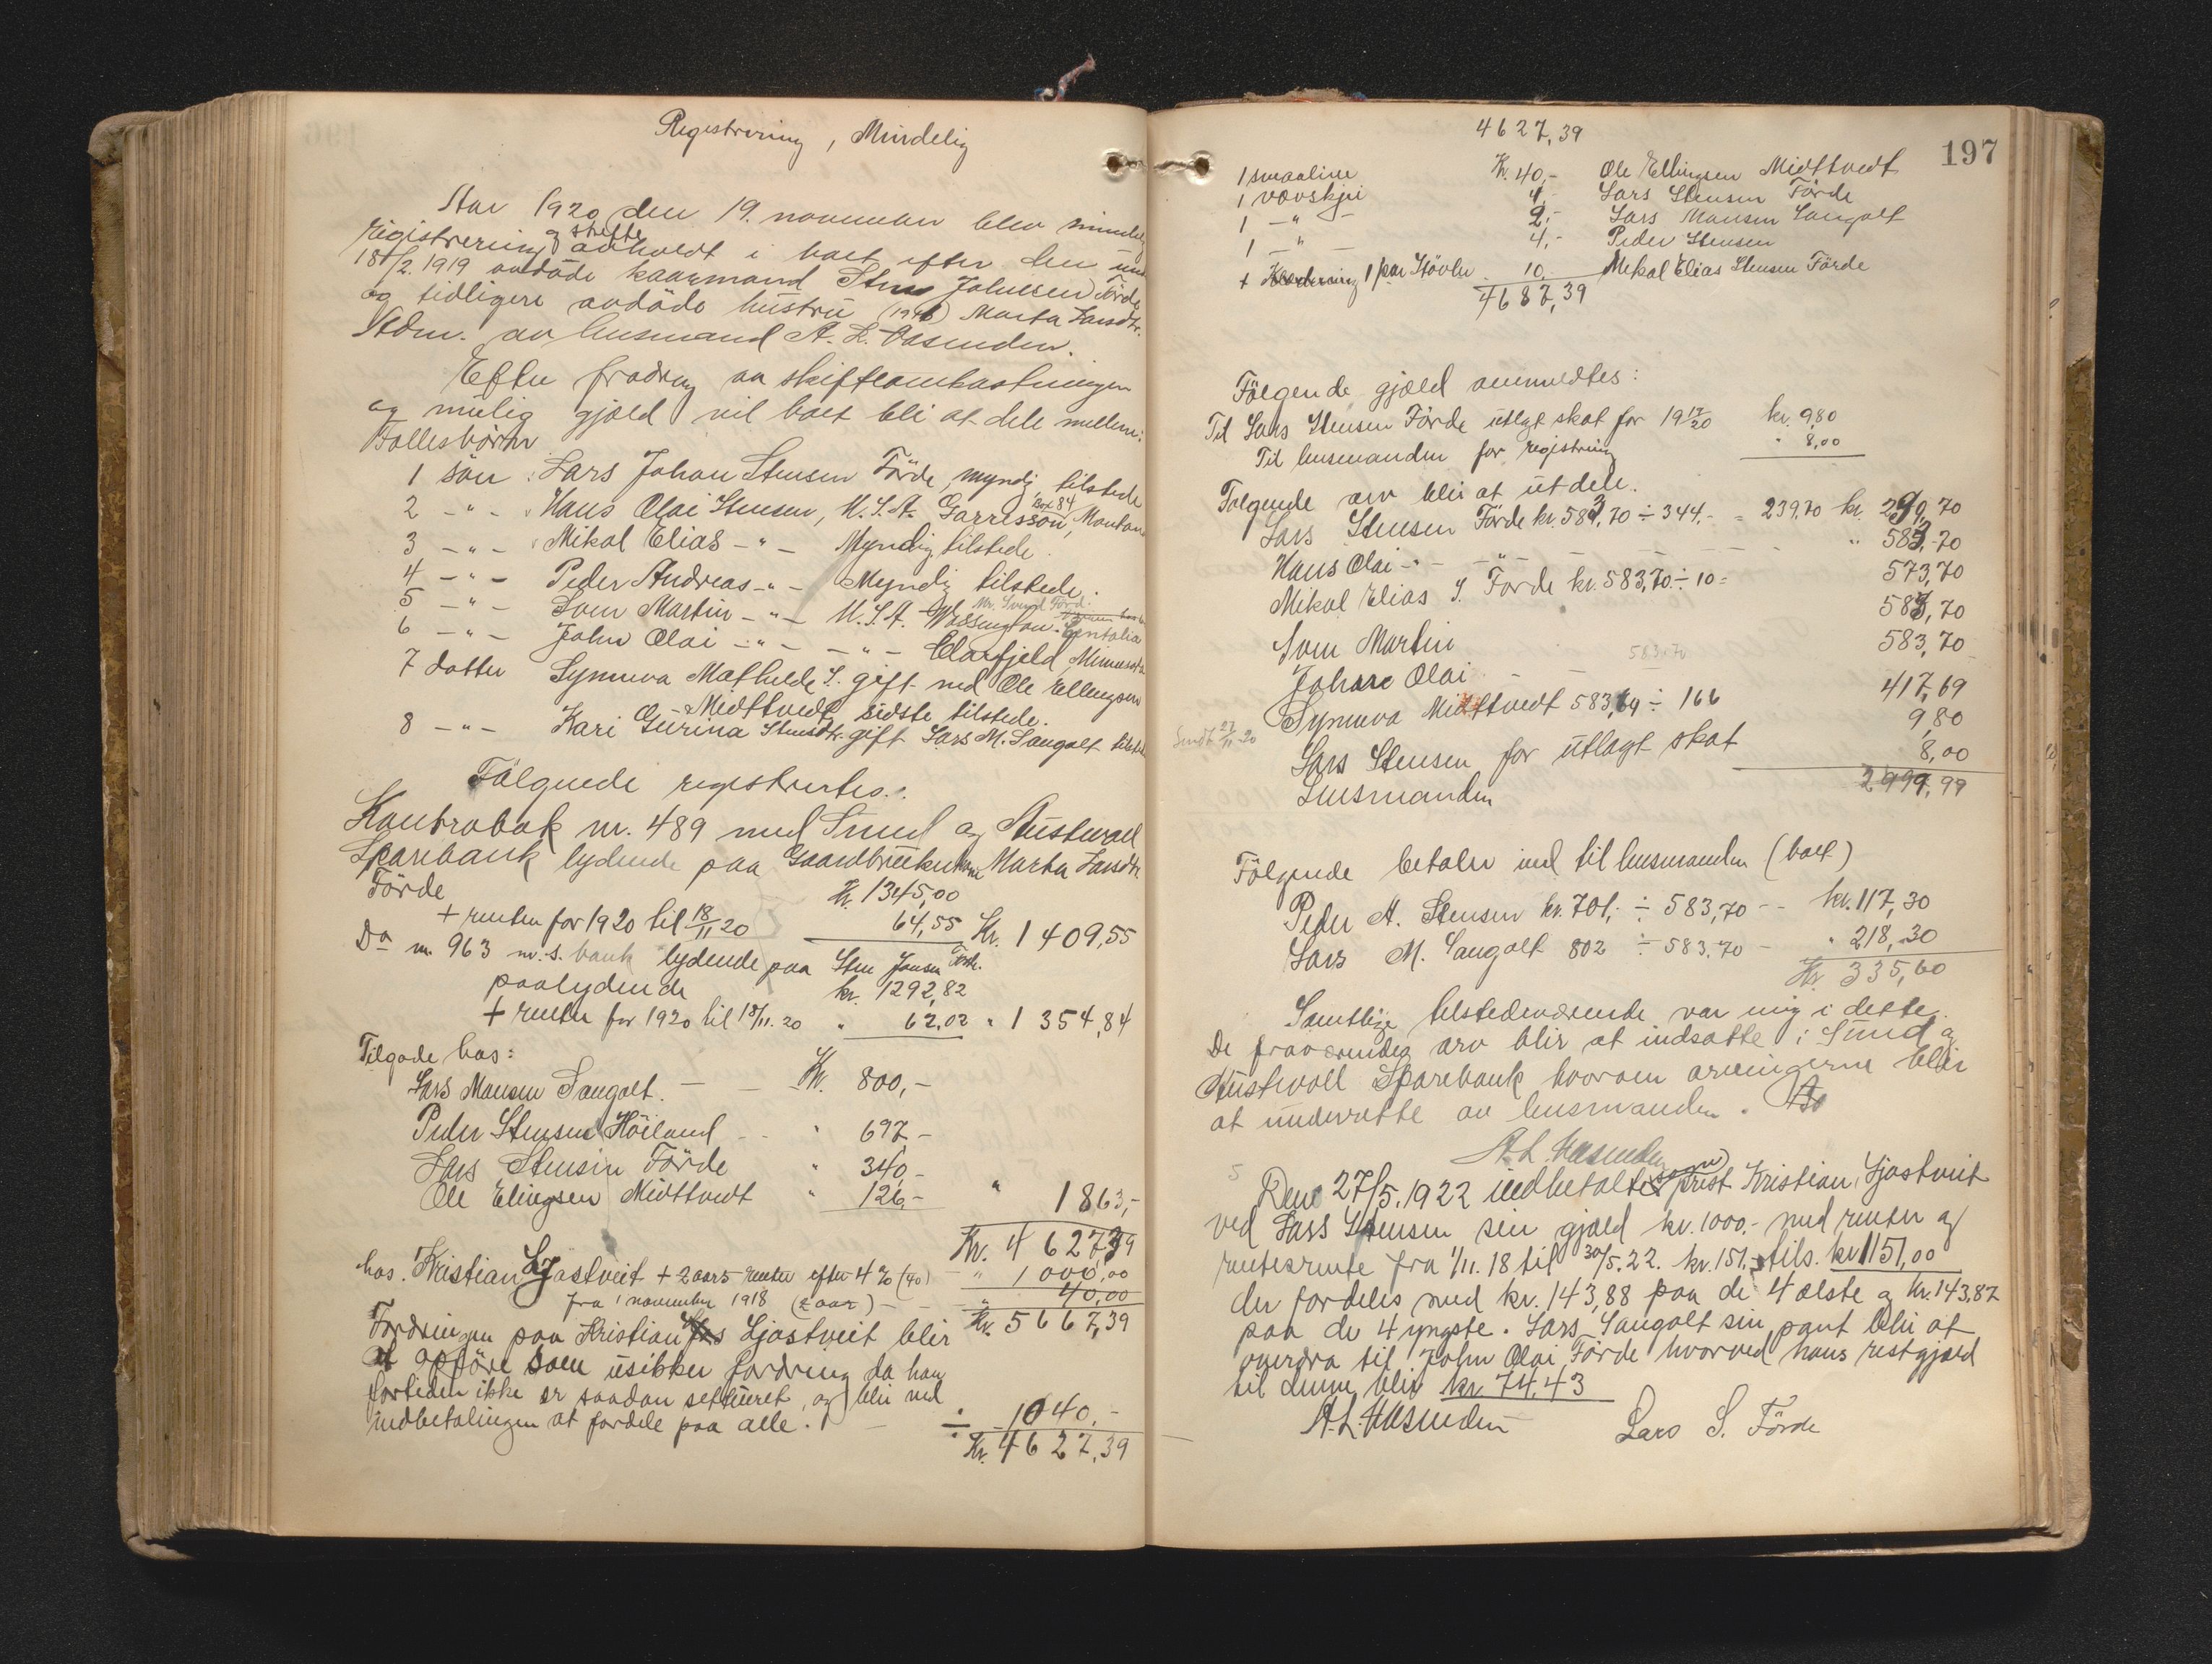 Registrering, Mindelig
Aar 1920 den 19. november blev mindelig
registrering og skifte avholdt i boet efter den
18/2. 1919 avdöde kaarmand Sten Johnsen Förde
og tidligere avdöde hustru Marta Larsdtr.
Adm. av lensmand A. L. Vasenden.
Efter fradrag av skifteomkostningen
og mulig gjæld vil boet bli at dele mellem:
Fællesbörn
1 sön : Lars Johan Stensen Förde, myndig, tilstede
2 -"- Hans Olai Stensen, U.S.A. Garrisson, Box 84 Montana
3 -"- Mikal Elias -"- Myndig tilstede.
4 -"- Peder Andreas -"- Myndig tilstede.
5 -"- Sven Martin -"- U.S.A. Wassington. Centalia
6 -"- John Olai -"- -"- Clarfjeld, Minnesota
7 datter Synneva Mathilde S. gift med Ole Ellingsen
Midttvedt, sidste tilstede.
8 -"- Kari Gurina Stensdtr. gift Lars M. Saugolt tilstede
Fölgende registrertes:
Kontrabok nr. 489 med Sund og Austevoll
Sparebank lydende paa Gaardbrukerkone Marta Larsdtr.
Förde Kr. 1345,00
+ renter for 1920 til 18/11 20 64,55 Kr. 1409,55
Do nr. 963 n.s. bank lydende paa Sten Jonsen Förde.
paalydende kr. 1292,82
+ renter for 1920 til 18/11. 20 " 62,02 " 1354,84
Tilgode hos:
Lars Monsen Saugolt. - - Kr. 800,-
Peder Stensen Höiland - - " 697,-
Lars Stensen Förde " 340,-
Ole Elingsen Midttvedt " 126,- " 1863,-
Kr. 4627,39
hos. Kristian Ljostveit + 2 aars renter efter 4 % (40) " 1000,00
fra 1 november 1918 (2 aar) - - " 40,00
Kr. 5667,39
Fordringen paa Kristian Ljostveit blir
at opföre som usikker fordring da han
fortiden ikke er saadan situeret, og blir ved
indbetalingen at fordele paa alle. - ÷ 1040,-
Kr. 4627,39
197
4627,39
1 smaaline Kr. 40,- Ole Ellingsen Midttvedt
1 vovskjei 4,- Lars Stensen Förde
1 -"- 2,- Lars Monsen Saugolt
1 -"- 4,- Peder Stensen
+ 1 par Stövler 10,- Mikal Elias Stensen Förde
4687,39
Fölgende gjæld anmeldtes:
Til Lars Stensen Förde utlagt skat for 1919/20 kr. 9,80
Til lensmanden for registrering " 8,00
Fölgende arv blir at utdele.
Lars Stensen Förde kr. 583,70 ÷ 344,- = 239,70 kr. 239,70
Hans Olai -"- " 583,70
Mikal Elias S. Förde kr. 583,70 ÷ 10 = 573,70
Sven Martin 583,70
Johan Olai 583,70 583,70
Sendt 27/11 20 Synneva Midttvedt 583,69 ÷ 166 417,69
Lars Stensen for utlagt skat 9,80
Lensmanden 8,00
2999,99
Fölgende betaler ind til lensmanden (boet)
Peder A. Stensen kr. 701,- ÷ 583,70 -- kr. 117,30
Lars M. Saugolt 802 ÷ 583,70 - " 218,30
Kr. 335,60
Samtlige tilstedeværende var enig i dette.
De fraværendes arv blir at indsætte i Sund og
Austevoll Sparebank hvorom arvingerne blir
at underrette av lensmanden.
A. L. Vasenden
Den 27/5. 1922 indbetaltes Kristian Ljostveit
ved Lars Stensen sin gjæld kr. 1000.- med renter og
rentesrente fra 1/11. 18 til 30/5. 22. kr. 151,- tils. kr 1151,00
der fordeles med kr. 143,88 paa de 4 ælste og kr. 143,87
paa de 4 yngste. Lars Saugolt sin part blir at
overdra til John Olai Förde hvorved hans restgjæld
til denne blir kr. 74,43
A. L. Vasenden Lars S. Förde